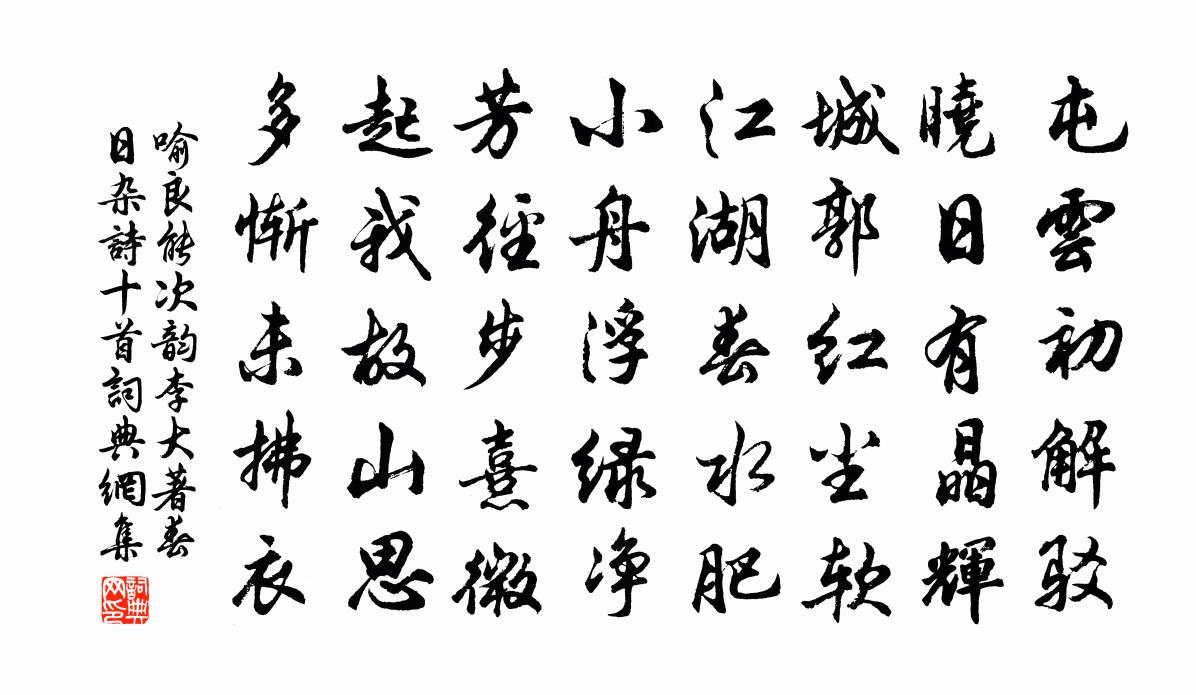 屯雲初解駁
曉日有晶輝
城郭红尘软
江湖春水肥
小舟浮绿净
芳徑步熹微
起我故山思
多慚未拂衣
喻良能次韵李大著春
日杂詩十首詞典網集
詞典网印